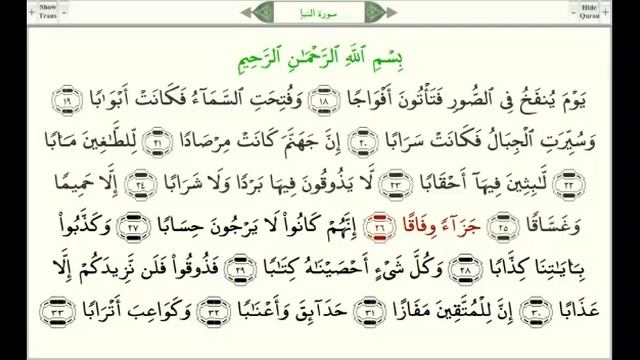 Show Trans
سورة النبإ
Hide Quran
بِسْمِ ٱللَّهِ ٱلرَّحْمَـٰنِ ٱلرَّحِيمِ
يَوْمَ يُنفَخُ فِى ٱلصُّورِ فَتَأْتُونَ أَفْوَاجًا ١٨ وَفُتِحَتِ ٱلسَّمَآءُ فَكَانَتْ أَبْوَٰبًا ١٩
وَسُيِّرَتِ ٱلْجِبَالُ فَكَانَتْ سَرَابًا ٢٠ إِنَّ جَهَنَّمَ كَانَتْ مِرْصَادًا ٢١ لِّلطَّـٰغِينَ مَـَٔابًا
٢٢ لَّـٰبِثِينَ فِيهَآ أَحْقَابًا ٢٣ لَّا يَذُوقُونَ فِيهَا بَرْدًا وَلَا شَرَابًا ٢٤ إِلَّا حَمِيمًا
وَغَسَّاقًا ٢٥ جَزَآءً وِفَاقًا ٢٦ إِنَّهُمْ كَانُوا۟ لَا يَرْجُونَ حِسَابًا ٢٧ وَكَذَّبُوا۟
بِـَٔايَـٰتِنَا كِذَّابًا ٢٨ وَكُلَّ شَىْءٍ أَحْصَيْنَـٰهُ كِتَـٰبًا ٢٩ فَذُوقُوا۟ فَلَن نَّزِيدَكُمْ إِلَّا
عَذَابًا ٣٠ إِنَّ لِلْمُتَّقِينَ مَفَازًا ٣١ حَدَآئِقَ وَأَعْنَـٰبًا ٣٢ وَكَوَاعِبَ أَتْرَابًا ٣٣